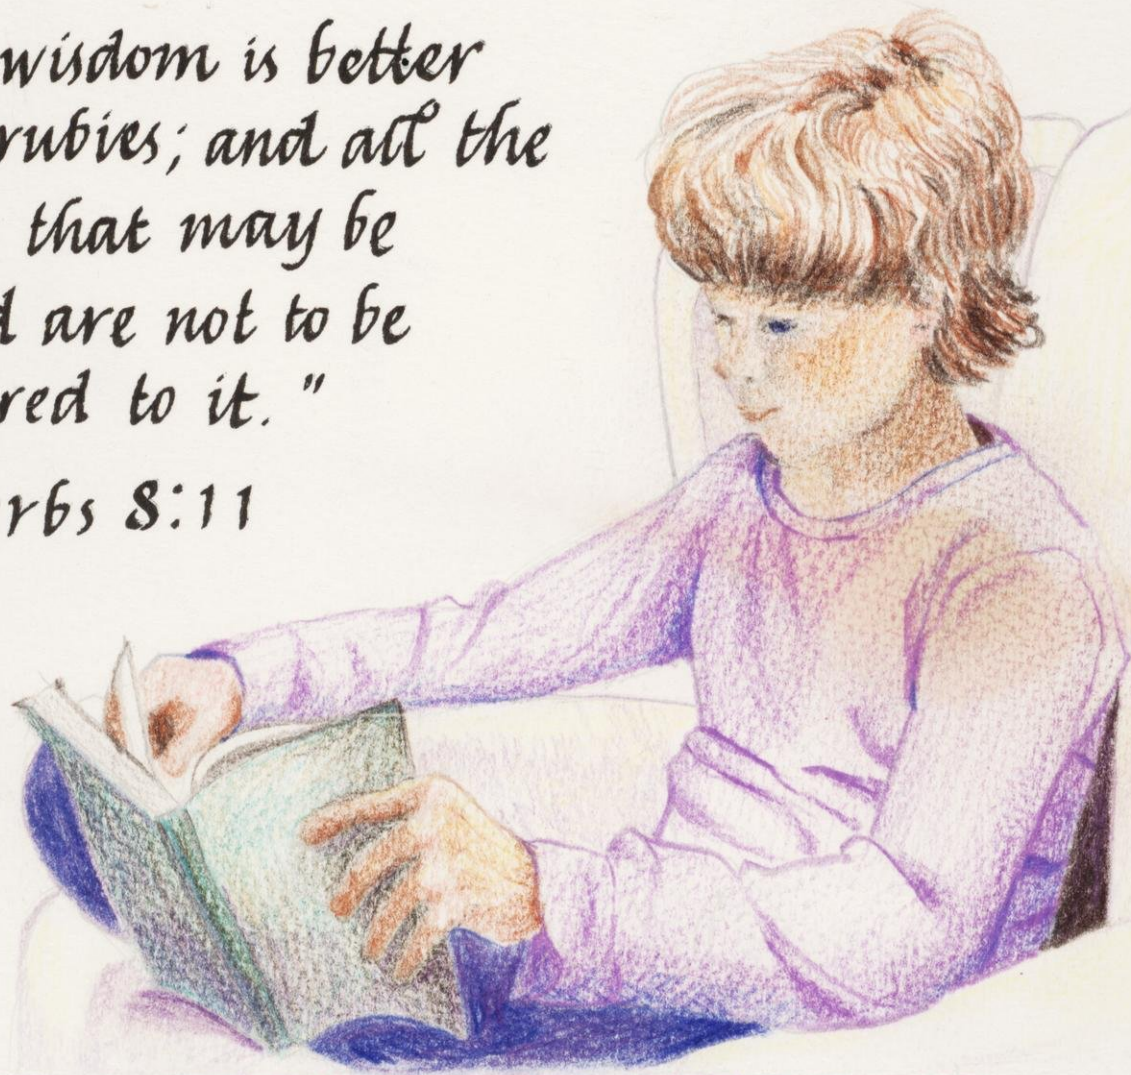 wisdom is better
rubies; and all the
that may be
d are not to be
red to it."
rbs 8:11